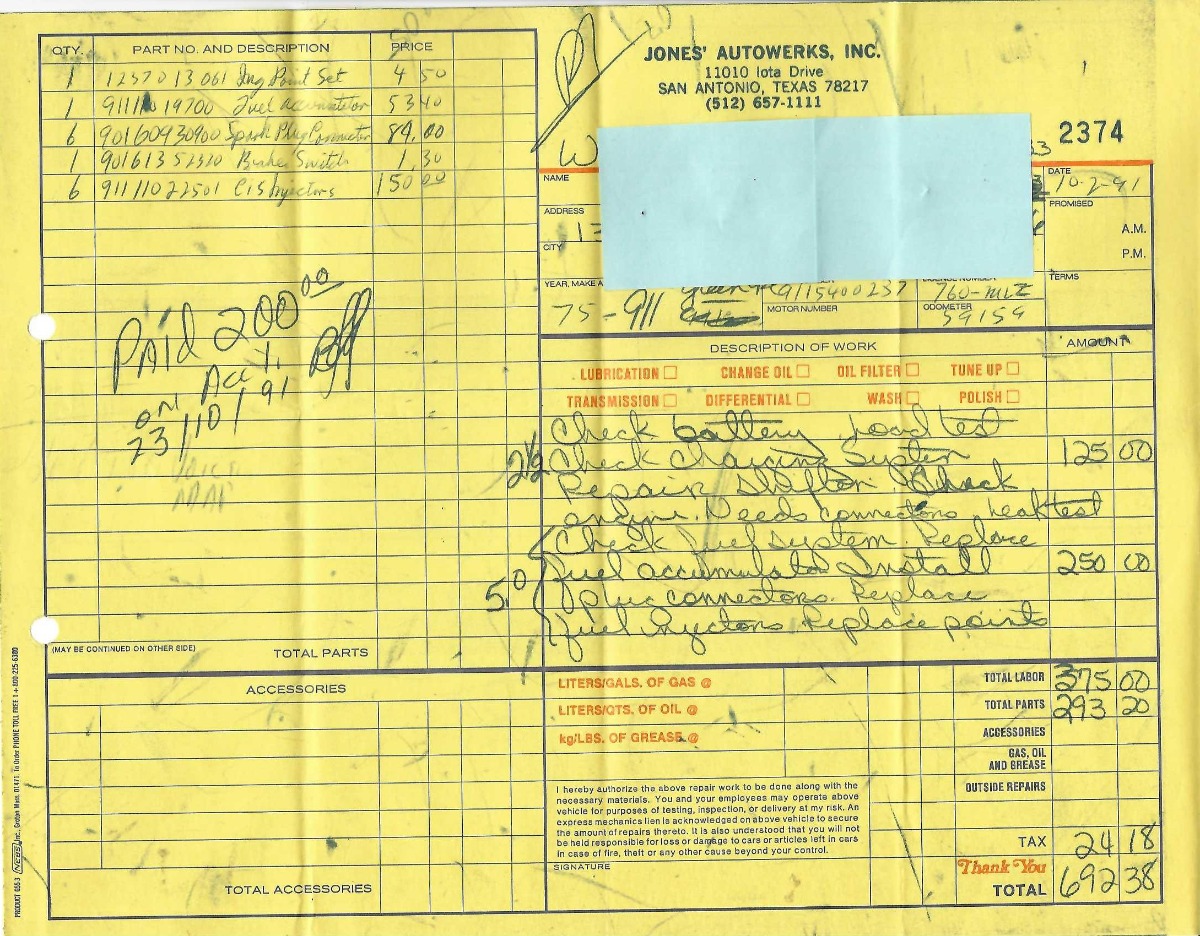 JONES' AUTOWERKS, INC.
11010 Iota Drive
SAN ANTONIO, TEXAS 78217
(512) 657-1111
2374
QTY. PART NO. AND DESCRIPTION PRICE
1 12370 13 061 Ing Point Set 4 50
1 911110 19700 Fuel accumulator 53 40
6 90160930900 Spark Plug Connector 84.00
1 901613 52320 Brake Switch 1.30
6 911110 22501 CIS Injectors 150 00
Paid 200 00
on Acct.
23/10/91
(MAY BE CONTINUED ON OTHER SIDE) TOTAL PARTS
ACCESSORIES
TOTAL ACCESSORIES
PRODUCT 655-3 NEBS Inc., Groton Mass. 01471. To Order PHONE TOLL FREE 1 + 800-225-6380
NAME
DATE
10-2-91
ADDRESS
PROMISED
13
A.M.
CITY
P.M.
YEAR, MAKE A
TERMS
75-911 green
9115400237
760-MLZ
MOTOR NUMBER
ODOMETER
59159
DESCRIPTION OF WORK AMOUNT
LUBRICATION CHANGE OIL OIL FILTER TUNE UP
TRANSMISSION DIFFERENTIAL WASH POLISH
Check battery load test
2 1/2 Check charging system 125 00
Repair shifter Check
engine. Needs connectors leak test
Check fuel system. Replace
5.0 fuel accumulator Install 250 00
plug connectors. Replace
fuel injectors Replace points
LITERS/GALS. OF GAS @
LITERS/QTS. OF OIL @
kg/LBS. OF GREASE @
TOTAL LABOR 375 00
TOTAL PARTS 293 20
ACCESSORIES
GAS, OIL
AND GREASE
OUTSIDE REPAIRS
I hereby authorize the above repair work to be done along with the
necessary materials. You and your employees may operate above
vehicle for purposes of testing, inspection, or delivery at my risk. An
express mechanics lien is acknowledged on above vehicle to secure
the amount of repairs thereto. It is also understood that you will not
be held responsible for loss or damage to cars or articles left in cars
in case of fire, theft or any other cause beyond your control.
SIGNATURE
TAX 24 18
Thank You
TOTAL 692 38